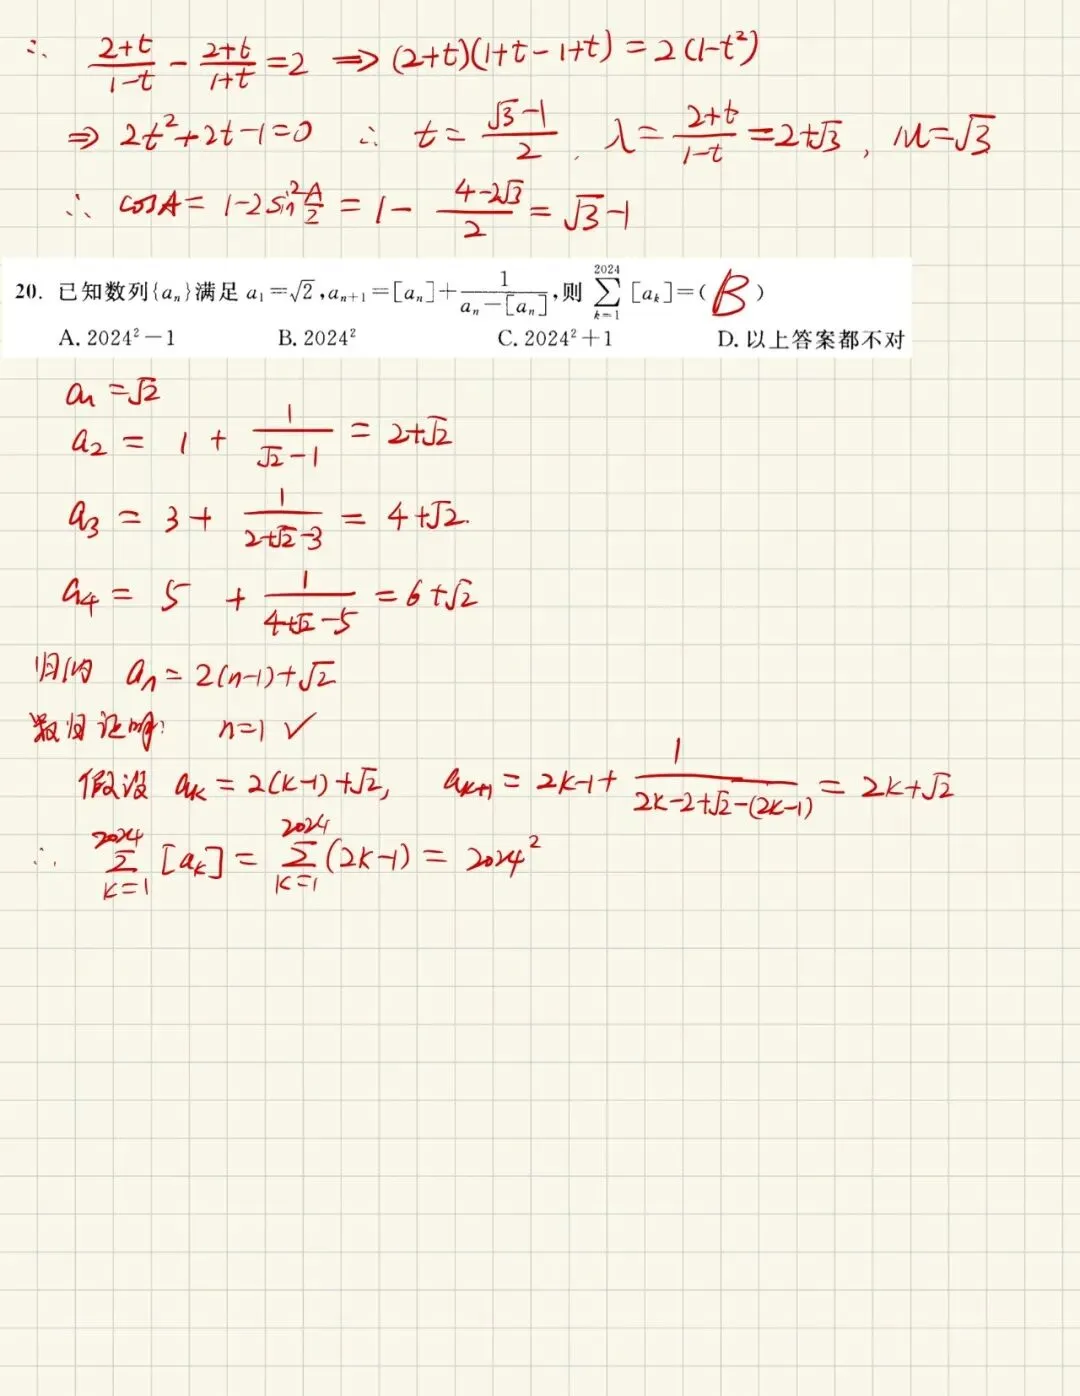 ∴ (2+t)/(1-t) - (2+t)/(1+t) = 2 ⇒ (2+t)(1+t-1+t) = 2(1-t²)
⇒ 2t²+2t-1=0 ∴ t = (√3-1)/2, λ = (2+t)/(1-t) = 2+√3, μ=√3
∴ cosA = 1-2sin²A/2 = 1 - (4-2√3)/2 = √3-1
20. 已知数列{aₙ}满足 a₁=√2, aₙ₊₁=[aₙ]+1/(aₙ-[aₙ]), 则 ∑_{k=1}^{2024} [aₖ]=( B )
A. 2024²-1 B. 2024² C. 2024²+1 D. 以上答案都不对
a₁ = √2
a₂ = 1 + 1/(√2-1) = 2+√2
a₃ = 3 + 1/(2+√2-3) = 4+√2.
a₄ = 5 + 1/(4+√2-5) = 6+√2
归纳 aₙ = 2(n-1)+√2
数归证明: n=1 ✓
假设 aₖ = 2(k-1)+√2, aₖ₊₁ = 2k-1 + 1/(2k-2+√2-(2k-1)) = 2k+√2
∴ ∑_{k=1}^{2024} [aₖ] = ∑_{k=1}^{2024} (2k-1) = 2024²